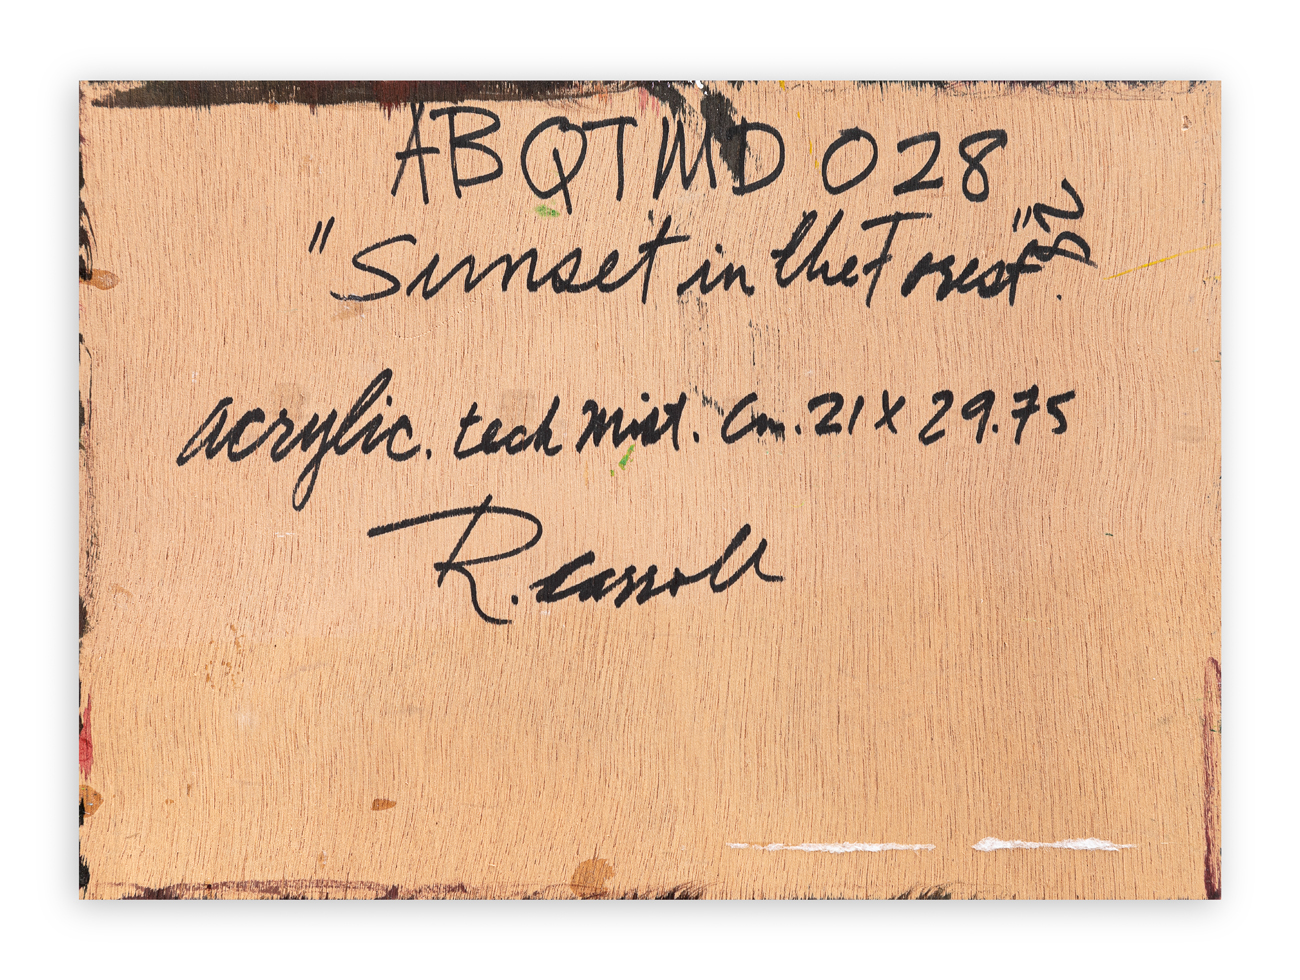 ABQTMD 028
"Sunset in the Forest".
acrylic. tech Mixt. Cm. 21 X 29.75
R. Carroll